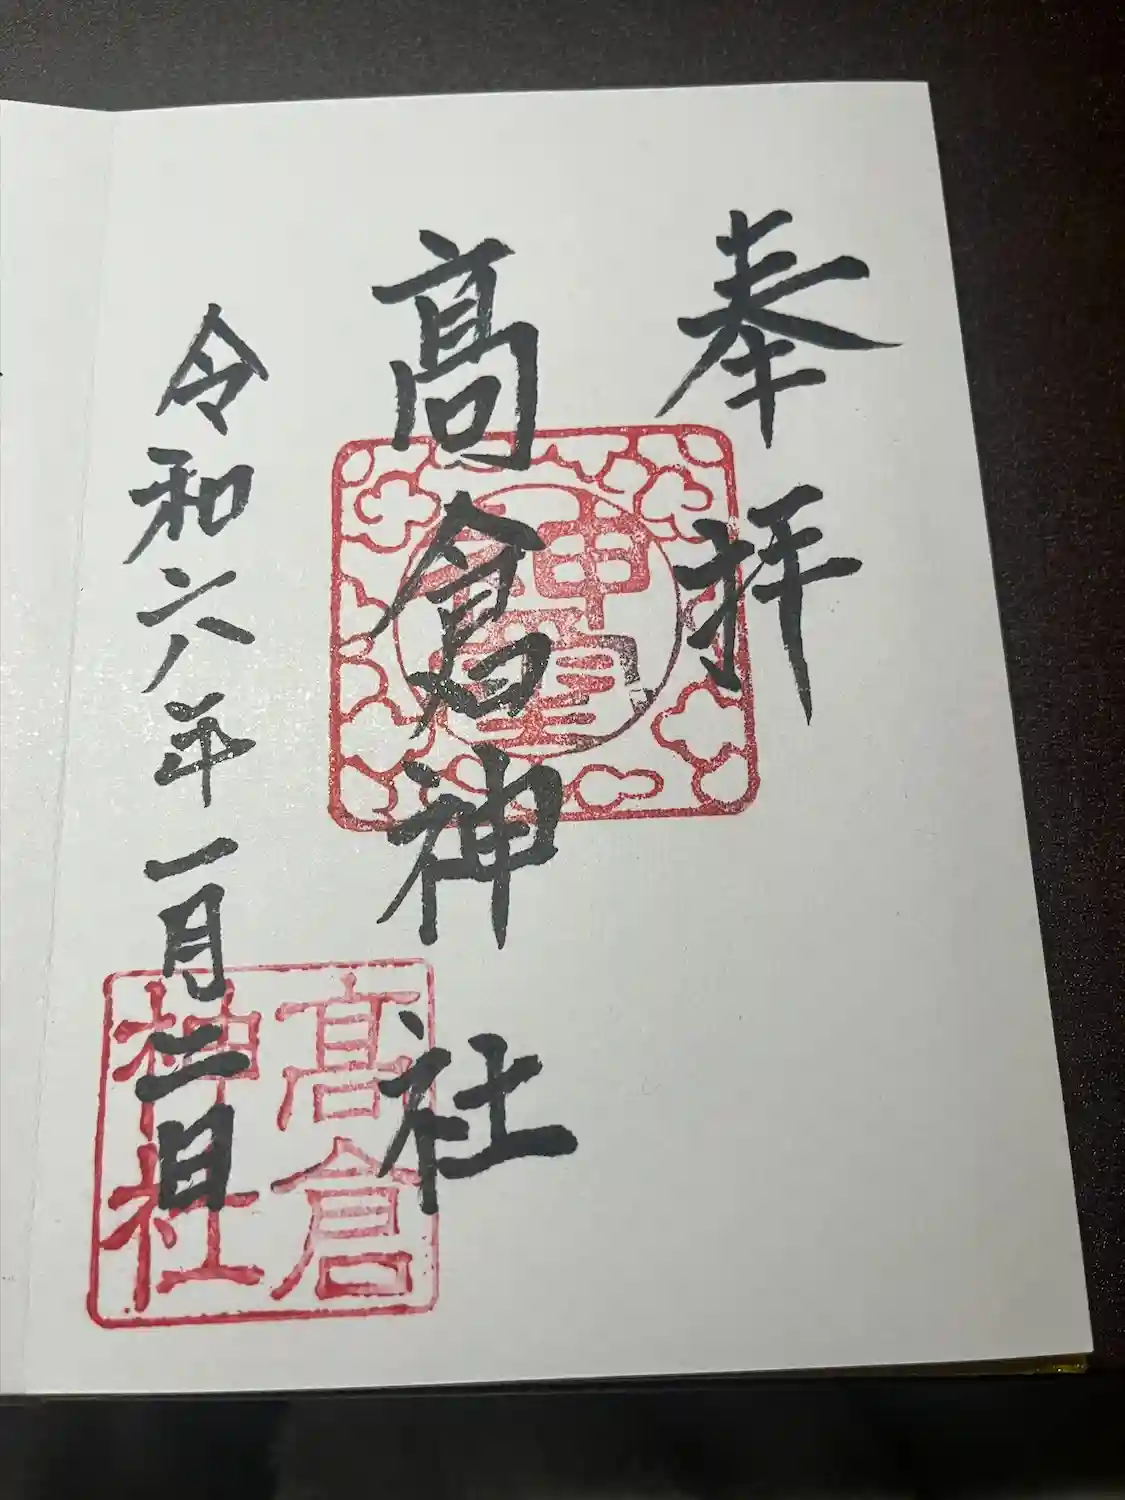 奉拝
髙倉神社
令和六年一月二日
髙倉
神社
神璽